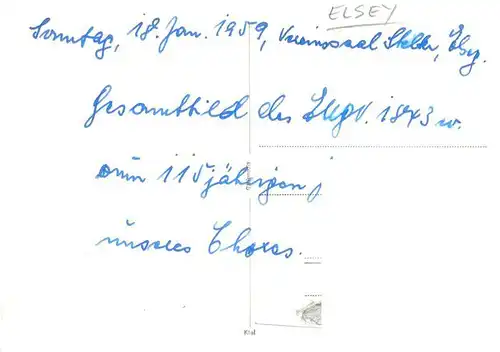 ELSEY
Sonntag, 18. Jan. 1959, Vereinssaal
Gesamtbild des 1843 w.
115jährigen
unseres Chores.